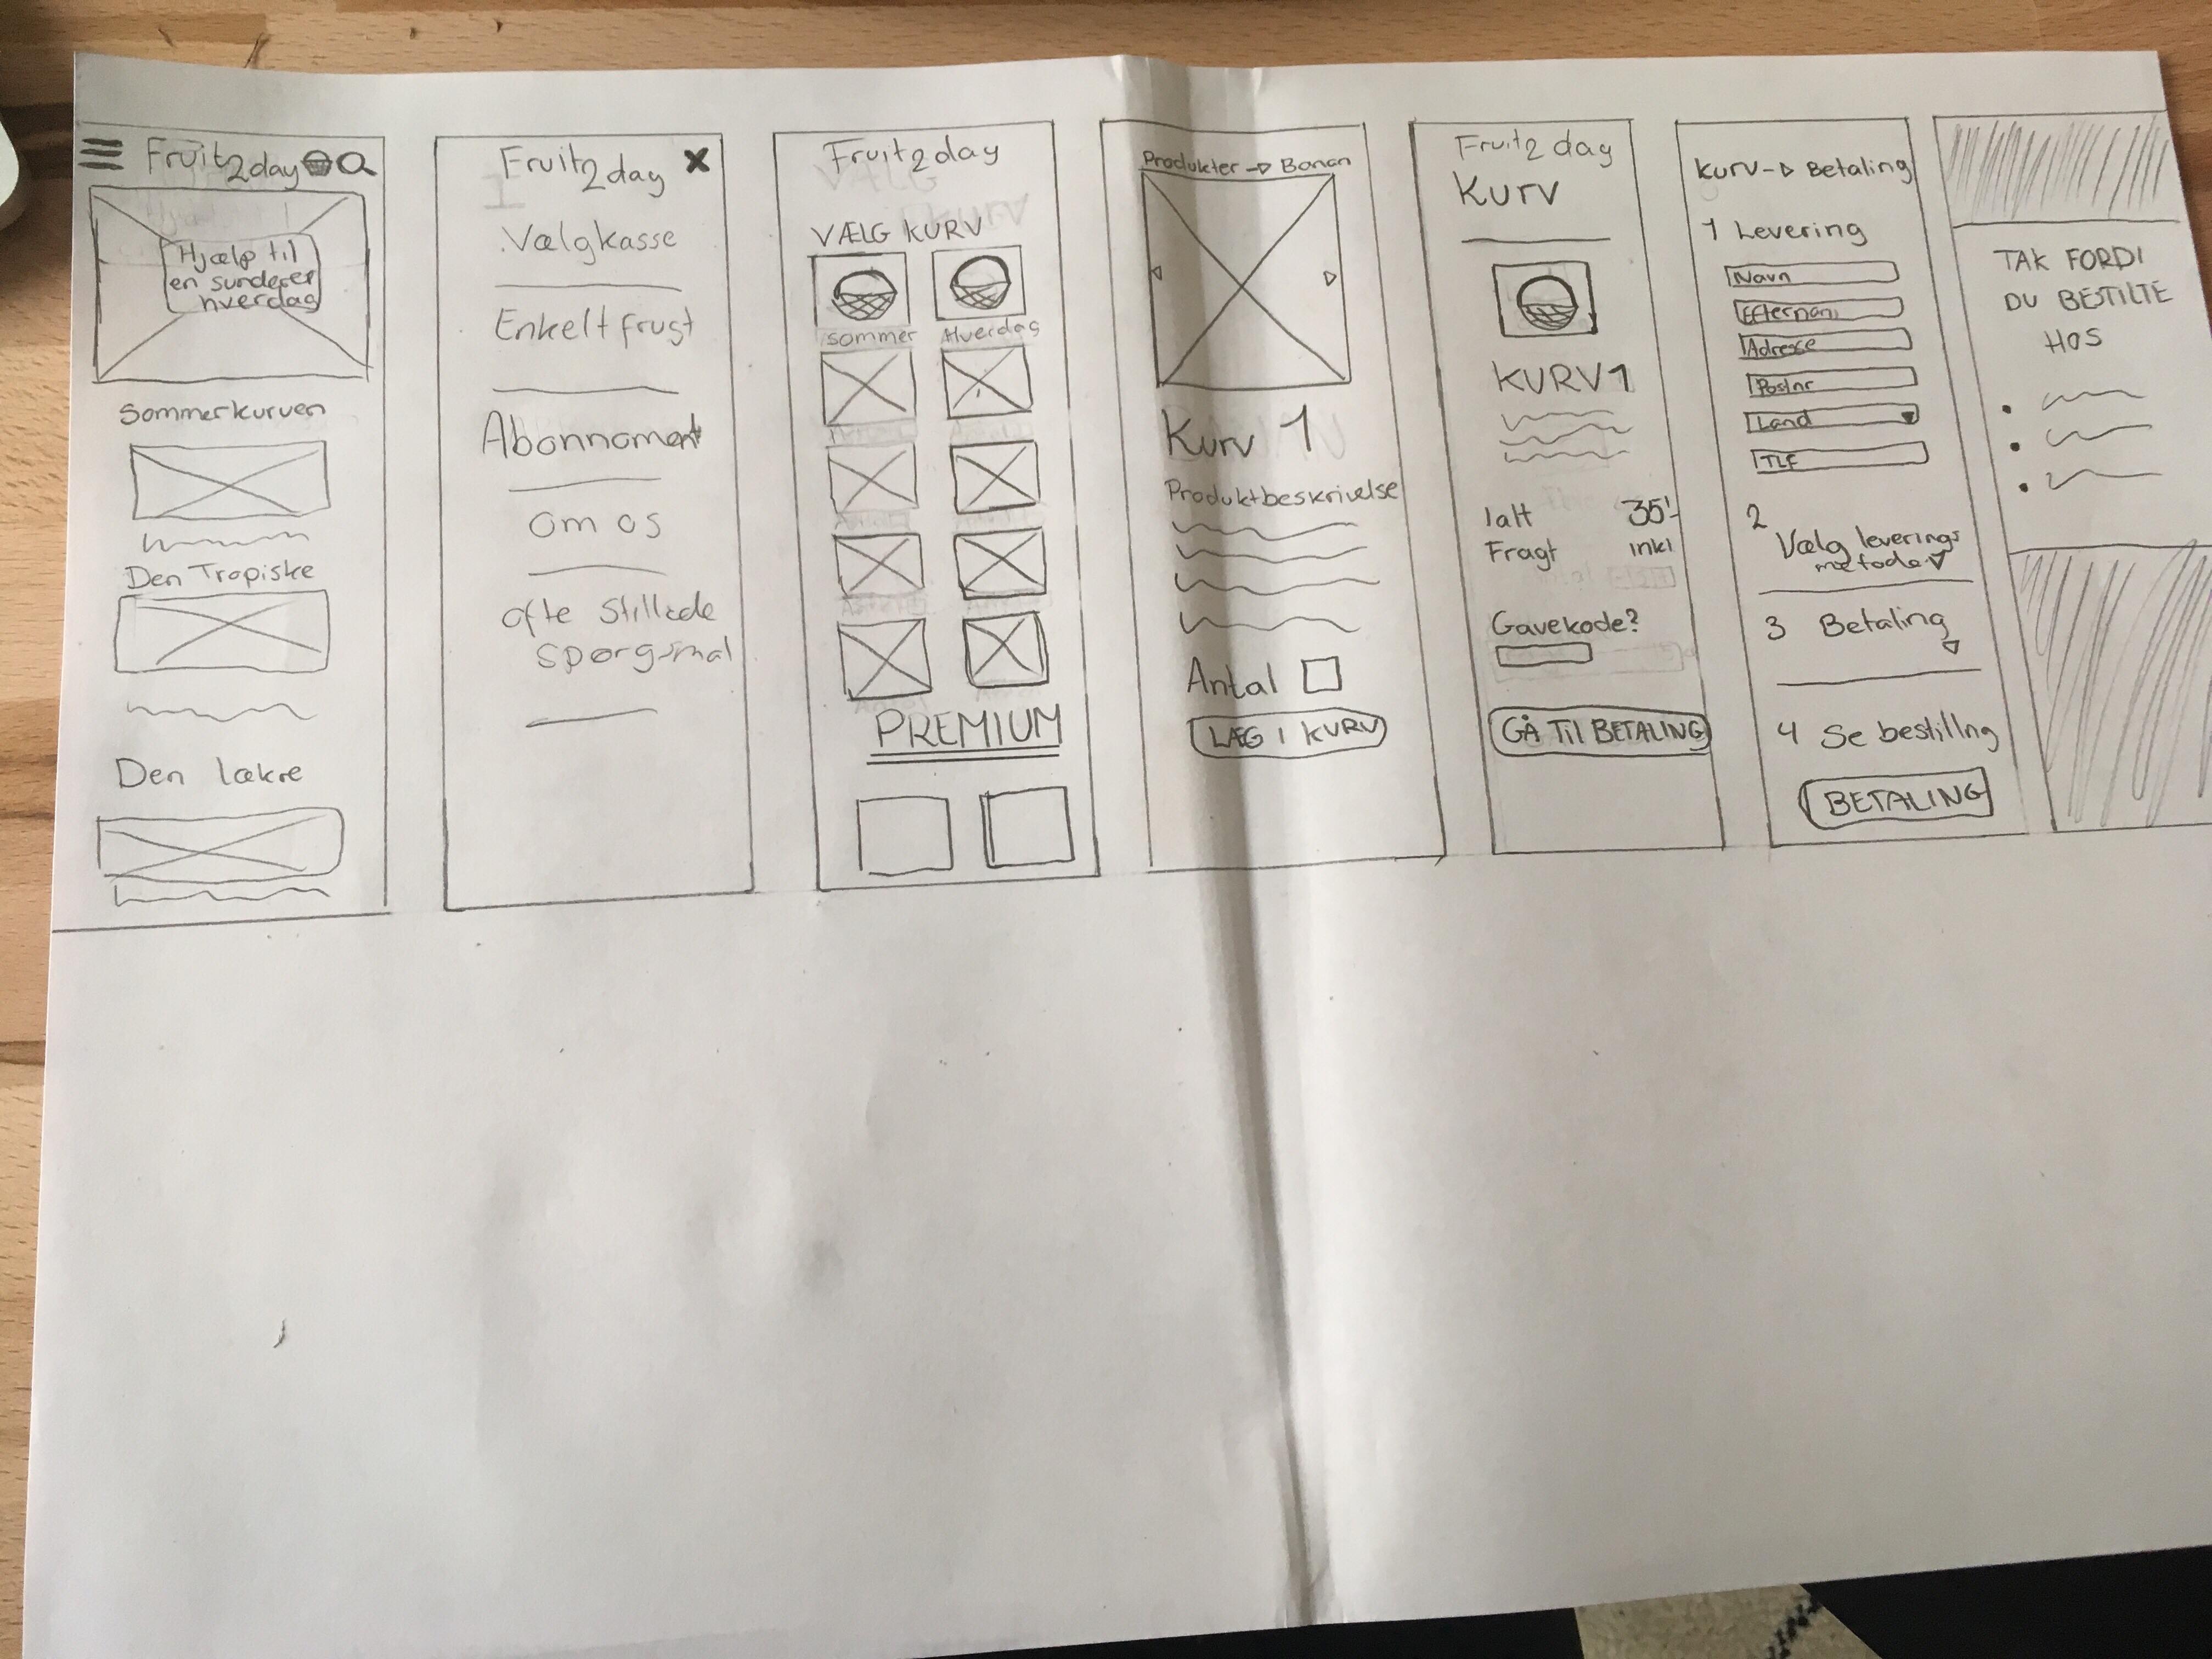 Fruit2day
Hjælp til
en sunderer
hverdag
Sommerkurven
Den Tropiske
Den lækre
Fruit2day X
Vælgkasse
Enkelt frugt
Abonnoment
Om os
Ofte stillede
spørgsmal
Fruit2day
VÆLG KURV
Sommer Hverdag
PREMIUM
Produkter -> Banan
Kurv 1
Produktbeskrivelse
Antal
LÆG I KURV
Fruit2day
Kurv
KURV 1
Ialt 35'-
Fragt inkl
Gavekode?
GÅ TIL BETALING
Kurv -> Betaling
1 Levering
Navn
Efternavn
Adresse
Postnr
Land
TLF
2
Vælg leverings
metode
3 Betaling
4 Se bestillng
BETALING
TAK FORDI
DU BESTILTE
HOS